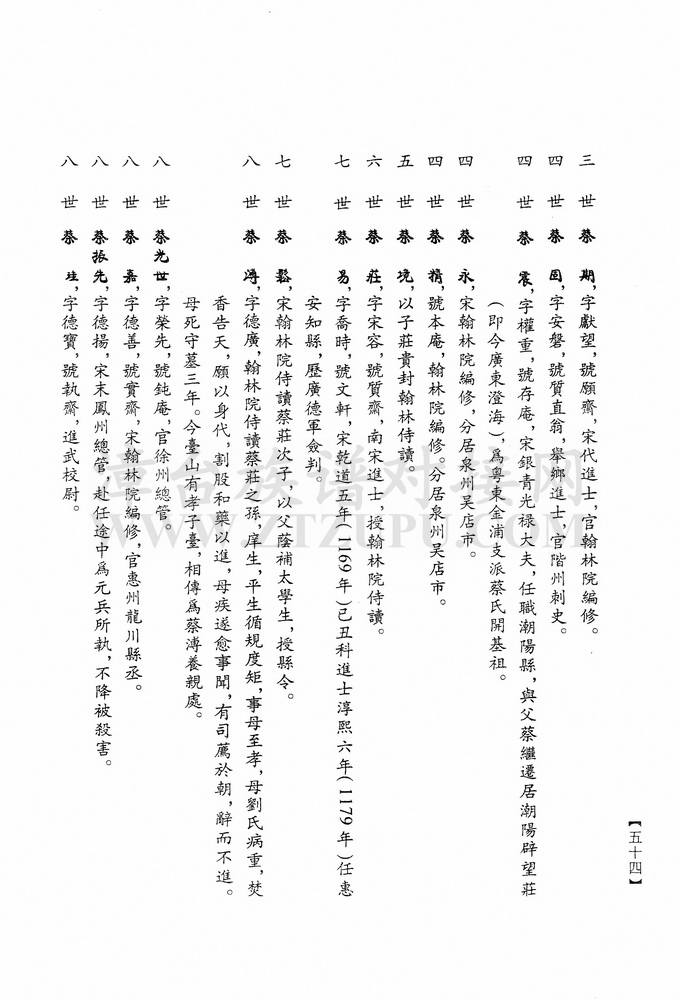 三世蔡期，字獻望，號願齋，宋代進士，官翰林院編修。
四世蔡固，字安磐，號質直翁，舉鄉進士，官階州刺史。
四世蔡震，字權重，號存庵，宋銀青光禄大夫，任職潮陽縣，與父蔡繼遷居潮陽辟望莊
（即今廣東澄海），爲粤東金浦支派蔡氏開基祖。
四世蔡永，宋翰林院編修，分居泉州吴店市。
四世蔡精，號本庵，翰林院編修。分居泉州吴店市。
五世蔡境，以子莊貴封翰林侍讀。
六世蔡莊，字宋容，號質齋，南宋進士，授翰林院侍讀。
七世蔡易，字喬時，號文軒，宋乾道五年（1169年）己丑科進士淳熙六年（1179年）任惠
安知縣，歷廣德軍僉判。
七世蔡鬆，宋翰林院侍讀蔡莊次子，以父蔭補太學生，授縣令。
八世蔡溥，字德廣，翰林院侍讀蔡莊之孫，庠生，平生循規度矩，事母至孝，母劉氏病重，焚
香告天，願以身代，割股和藥以進，母疾遂愈事聞，有司薦於朝，辭而不進。
母死守墓三年。今臺山有孝子臺，相傳爲蔡溥養親處。
八世蔡光世，字榮先，號鈍庵，官徐州總管。
八世蔡嘉，字德善，號實齋，宋翰林院編修，官惠州龍川縣丞。
八世蔡振先，字德揚，宋末鳳州總管，赴任途中爲元兵所執，不降被殺害。
八世蔡珪，字德寶，號執齋，進武校尉。
【五十四】
漳台族谱对接网
WWW.ZTZUPU.COM